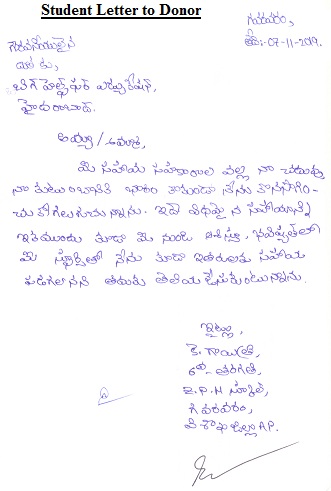 Student Letter to Donor
గురువారం,
తేది:-07-11-2019.
గౌరవనీయులైన
దాత కు,
బిగ్ హెల్ప్ ఫర్ ఎడ్యుకేషన్,
హైదరాబాద్.
అయ్యా/అమ్మా,
మీ సహాయ సహకారాల వల్ల నా చదువు
నా కుటుంబానికి భారం కాకుండా నేను కొనసాగిం-
చుకోగలుగుచున్నాను. ఇదే విధమైన సహాయాన్ని
ఇకముందు కూడా మీ నుండి ఆశిస్తూ, భవిష్యత్ లో
మీ స్ఫూర్తితో నేను కూడా ఇతరులకు సహాయ
పడగలనని తమకు తెలియ జేసుకుంటున్నాను.
ఇట్లు
కె. గాయిత్రి,
6వ-తరగతి,
Z.P.H స్కూల్,
గవరవరం,
విశాఖ జిల్లా A.P.